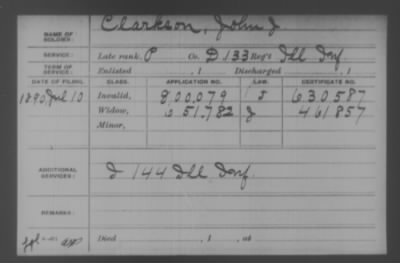 NAME OF SOLDIER: Clarkson, John J.
SERVICE: Late rank, P Co. D 133 Reg't Ill Inf.
TERM OF SERVICE: Enlisted , 1 Discharged , 1
DATE OF FILING. CLASS. APPLICATION NO. LAW. CERTIFICATE NO.
1890 Jul 10 Invalid, 800,079 J 630587
Widow, 651,782 J 461857
Minor,
ADDITIONAL SERVICES: I 144 Ill. Inf.
REMARKS:
Died , 1 , at